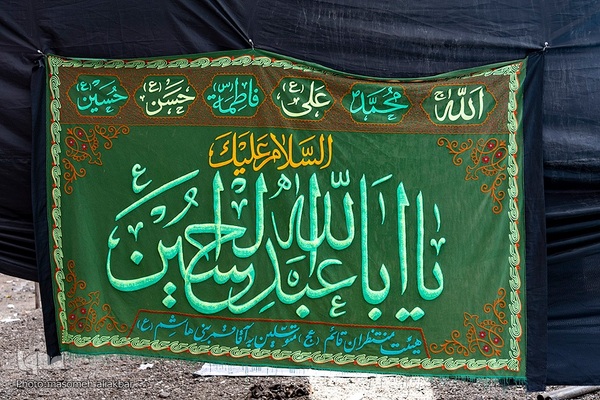 الله (ج) محمد (ص) علی (ع) فاطمة (س) حسن (ع) حسین (ع)
السلام علیک
یا اباعبدالله الحسین ع
هیئت منتظران قائم (عج) متوسلین به آقا قمر بنی هاشم (ع)
Photo: masomeh aliakbar